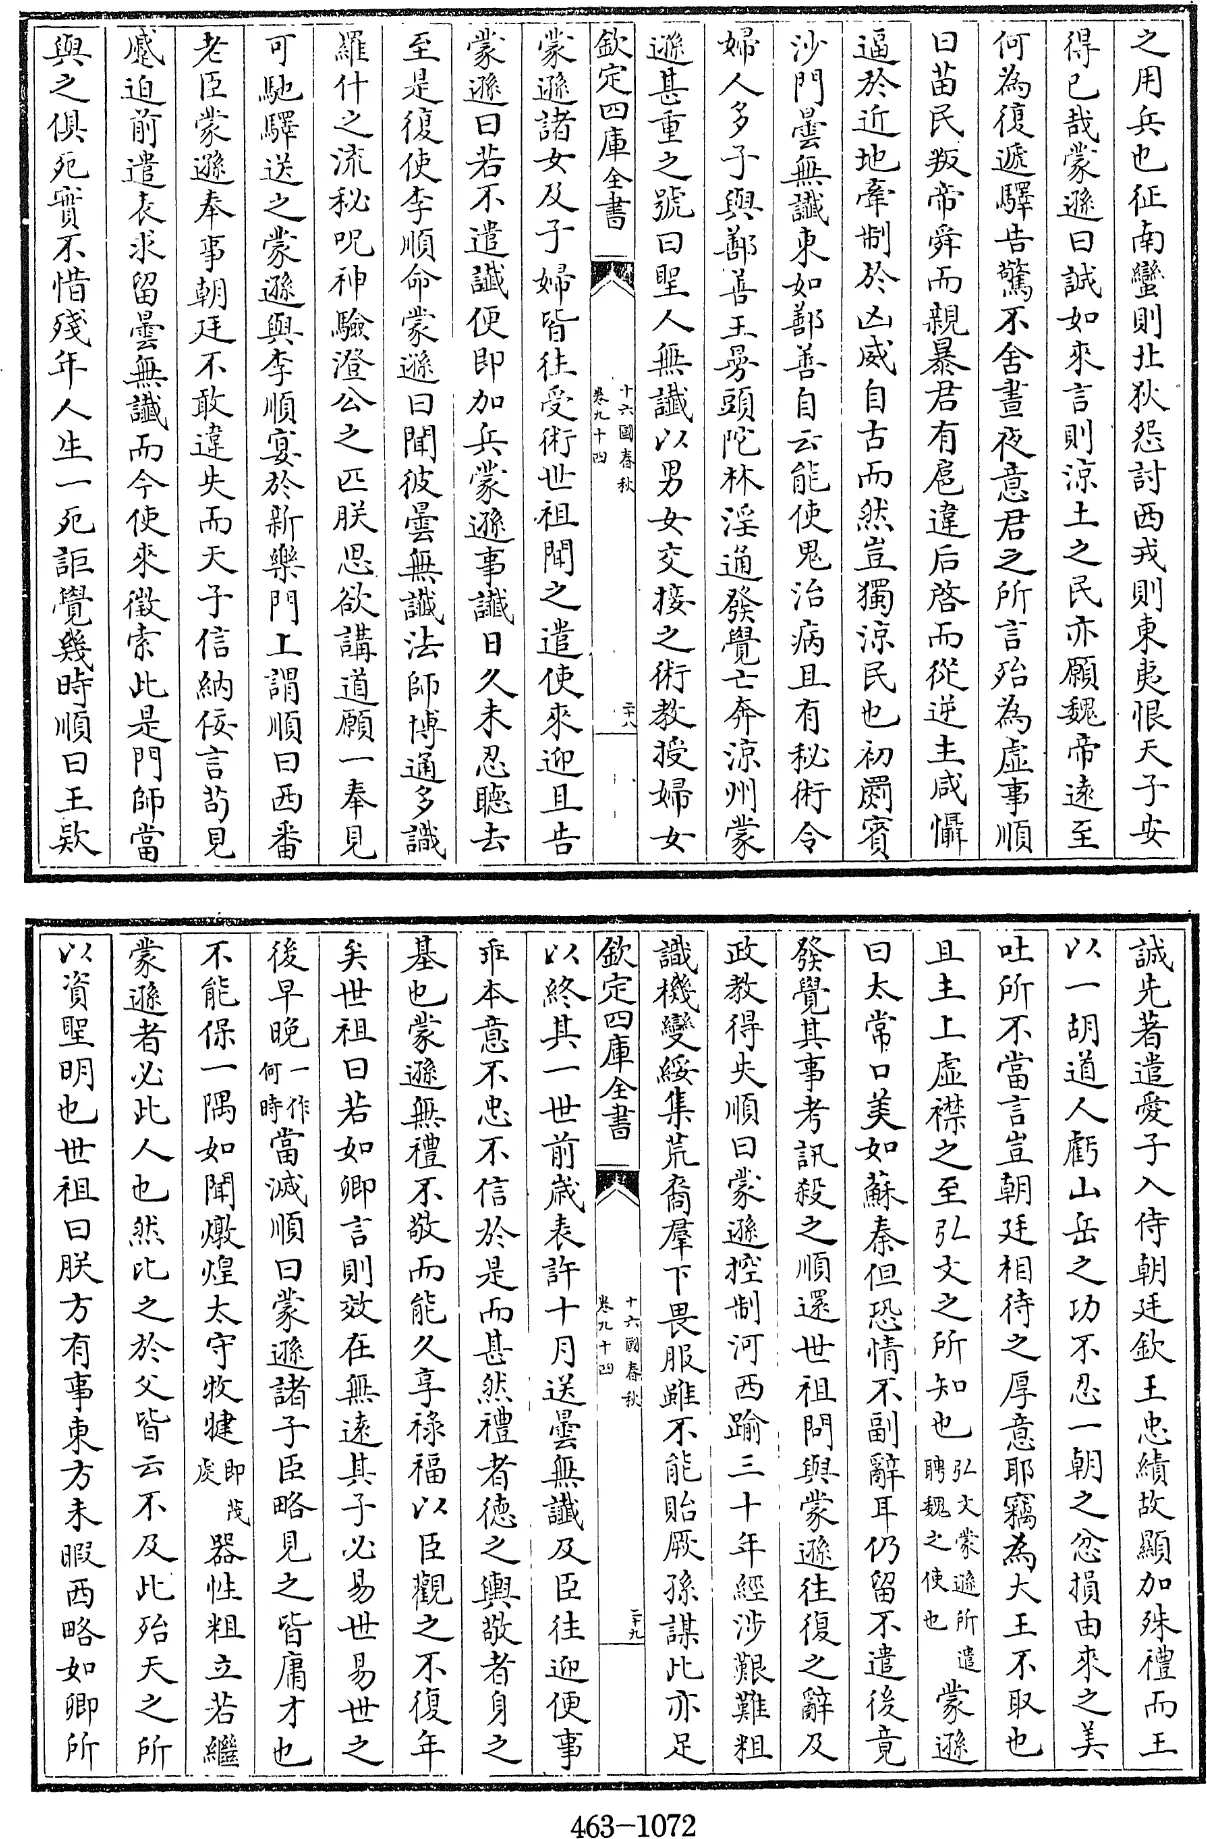 之用兵也征南蠻則北狄怨討西戎則東夷恨天子安
得已哉蒙遜曰誠如來言則涼土之民亦願魏帝遠至
何為復遞驛告驚不舍晝夜意君之所言殆為虛事順
曰苗民叛帝舜而親暴君有扈違后啓而從逆主咸懾
逼於近地牽制於凶威自古而然豈獨涼民也初罽賓
沙門曇無讖東如鄯善自云能使鬼治病且有秘術令
婦人多子與鄯善王㝑頭陀林淫通發覺亡奔涼州蒙
遜甚重之號曰聖人無讖以男女交接之術教授婦女
欽定四庫全書
十六國春秋
卷九十四
二十八
蒙遜諸女及子婦皆往受術世祖聞之遣使來迎且告
蒙遜曰若不遣讖便即加兵蒙遜事讖日久未忍聽去
至是復使李順命蒙遜曰聞彼曇無讖法師博通多識
羅什之流秘呪神驗澄公之匹朕思欲講道願一奉見
可馳驛送之蒙遜與李順宴於新樂門上謂順曰西番
老臣蒙遜奉事朝廷不敢違失而天子信納佞言茍見
蹙迫前遣表求留曇無讖而今使來徵索此是門師當
與之俱死實不惜殘年人生一死詎覺幾時順曰王欵
誠先著遣愛子入侍朝廷欽王忠績故顯加殊禮而王
以一胡道人虧山岳之功不忍一朝之忿損由來之美
吐所不當言豈朝廷相待之厚意耶竊為大王不取也
且主上虛襟之至弘文之所知也弘文蒙遜所遣聘魏之使也蒙遜
曰太常口美如蘇秦但恐情不副辭耳仍留不遣後竟
發覺其事考訊殺之順還世祖問與蒙遜往復之辭及
政教得失順曰蒙遜控制河西踰三十年經涉艱難粗
識機變綏集荒裔羣下畏服雖不能貽厥孫謀此亦足
欽定四庫全書
十六國春秋
卷九十四
二十九
以終其一世前歲表許十月送曇無讖及臣往迎便事
乖本意不忠不信於是而甚然禮者德之輿敬者身之
基也蒙遜無禮不敬而能久享祿福以臣觀之不復年
矣世祖曰若如卿言則效在無遠其子必易世易世之
後早晚一作何時當滅順曰蒙遜諸子臣略見之皆庸才也
不能保一隅如聞燉煌太守牧犍即茂虔器性粗立若繼
蒙遜者必此人也然比之於父皆云不及此殆天之所
以資聖明也世祖曰朕方有事東方未暇西略如卿所
463-1072